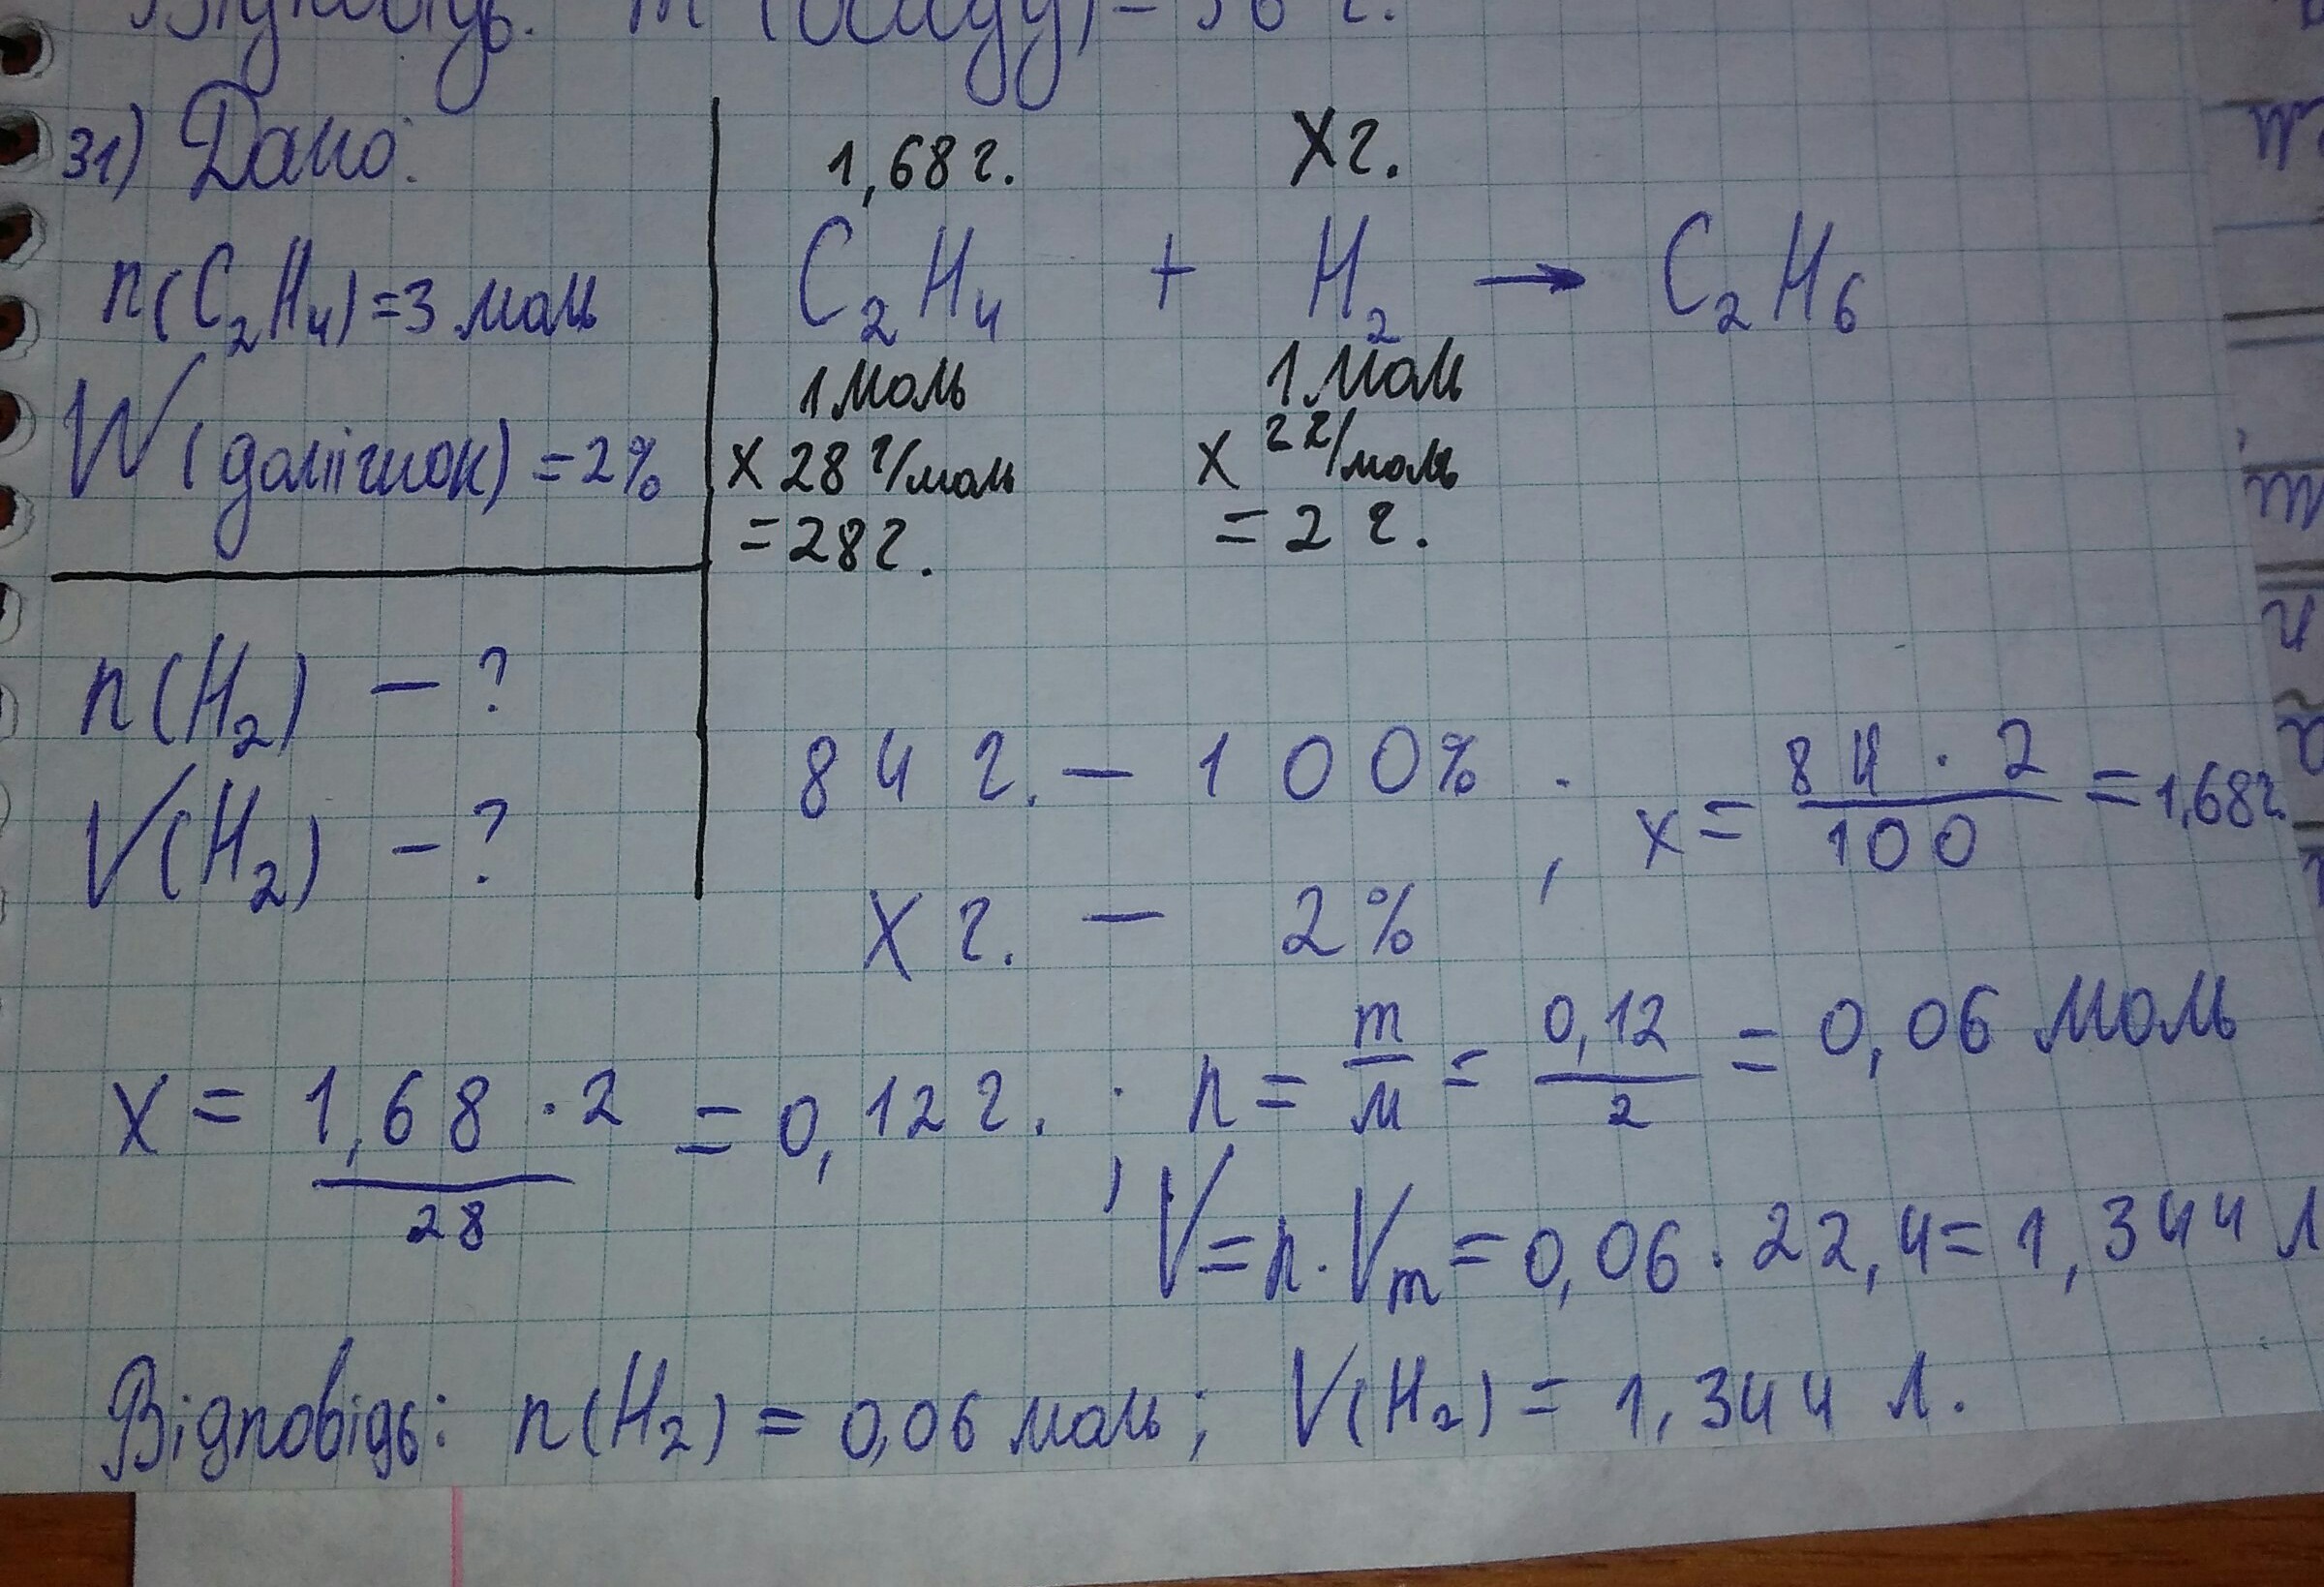 Відповідь. m (осаду) = 56 г.
31) Дано:
n(C₂H₄) = 3 моль
W (домішок) = 2%
n(H₂) – ?
V(H₂) – ?
1,68 г. X г.
C₂H₄ + H₂ → C₂H₆
1 моль 1 моль
x 28 г/моль x 2 г/моль
= 28 г. = 2 г.
84 г. – 100% ; x = 84 · 2 / 100 = 1,68 г.
X г. – 2%
x = 1,68 · 2 / 28 = 0,12 г. ; n = m/M = 0,12/2 = 0,06 моль
V = n · Vm = 0,06 · 22,4 = 1,344 л
Відповідь: n(H₂) = 0,06 моль; V(H₂) = 1,344 л.